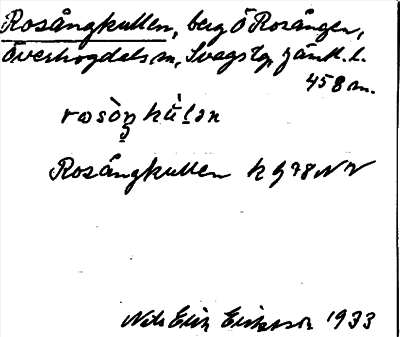 Rosångkullen, berg Ö Rosången,
Överhogdals sn, Svegs tg, Jämtl. l.
458 m.
Rosångkullen
Nils Erik Eriksson 1933